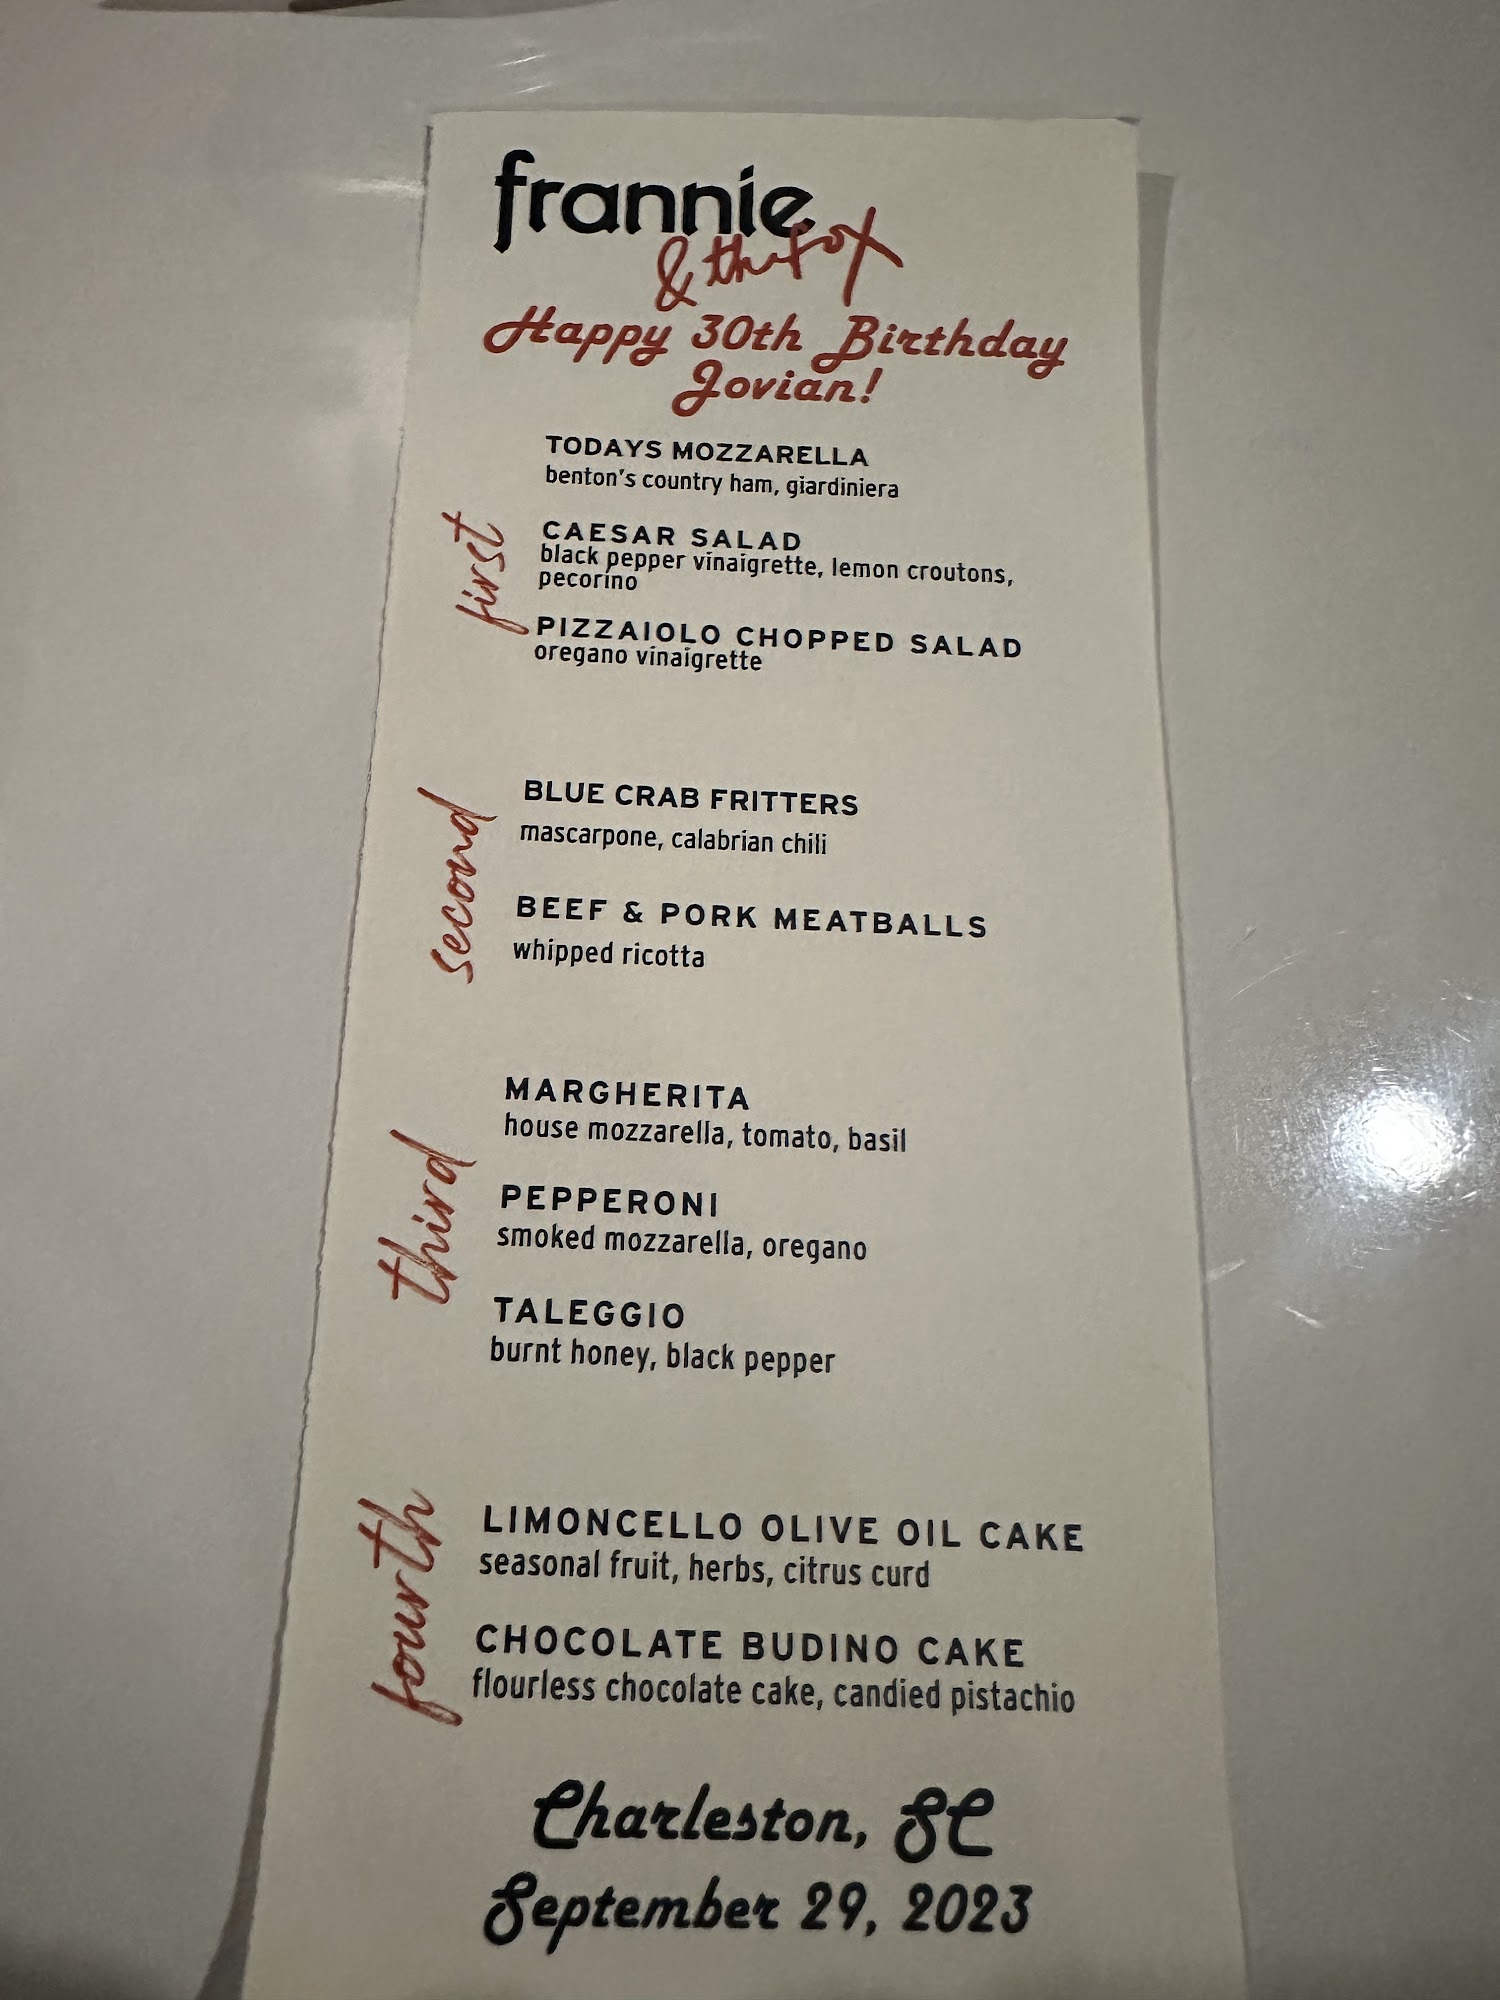 frannie
& the fox
Happy 30th Birthday
Jovian!
first
TODAYS MOZZARELLA
benton's country ham, giardiniera
CAESAR SALAD
black pepper vinaigrette, lemon croutons,
pecorino
PIZZAIOLO CHOPPED SALAD
oregano vinaigrette
second
BLUE CRAB FRITTERS
mascarpone, calabrian chili
BEEF & PORK MEATBALLS
whipped ricotta
third
MARGHERITA
house mozzarella, tomato, basil
PEPPERONI
smoked mozzarella, oregano
TALEGGIO
burnt honey, black pepper
fourth
LIMONCELLO OLIVE OIL CAKE
seasonal fruit, herbs, citrus curd
CHOCOLATE BUDINO CAKE
flourless chocolate cake, candied pistachio
Charleston, SC
September 29, 2023